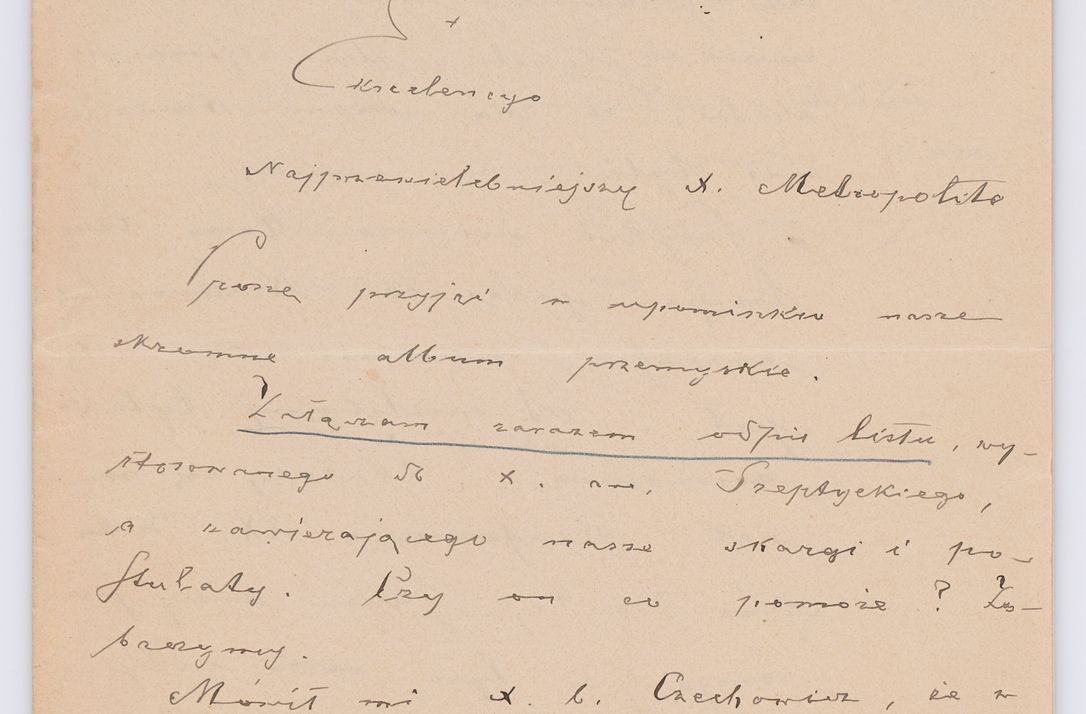 +
Ekscelencyo
Najprzewielebniejszy X. Metropolito
Proszę przyjąć w upominku nasze
skromne album przemyskie.
Załączam zarazem odpis listu, wy-
stosowanego do X. Szeptyckiego,
a zawierającego nasze skargi i po-
stulaty. Czy on co pomoże? Zo-
baczymy.
Mówił mi X. b. Czechowicz, że w